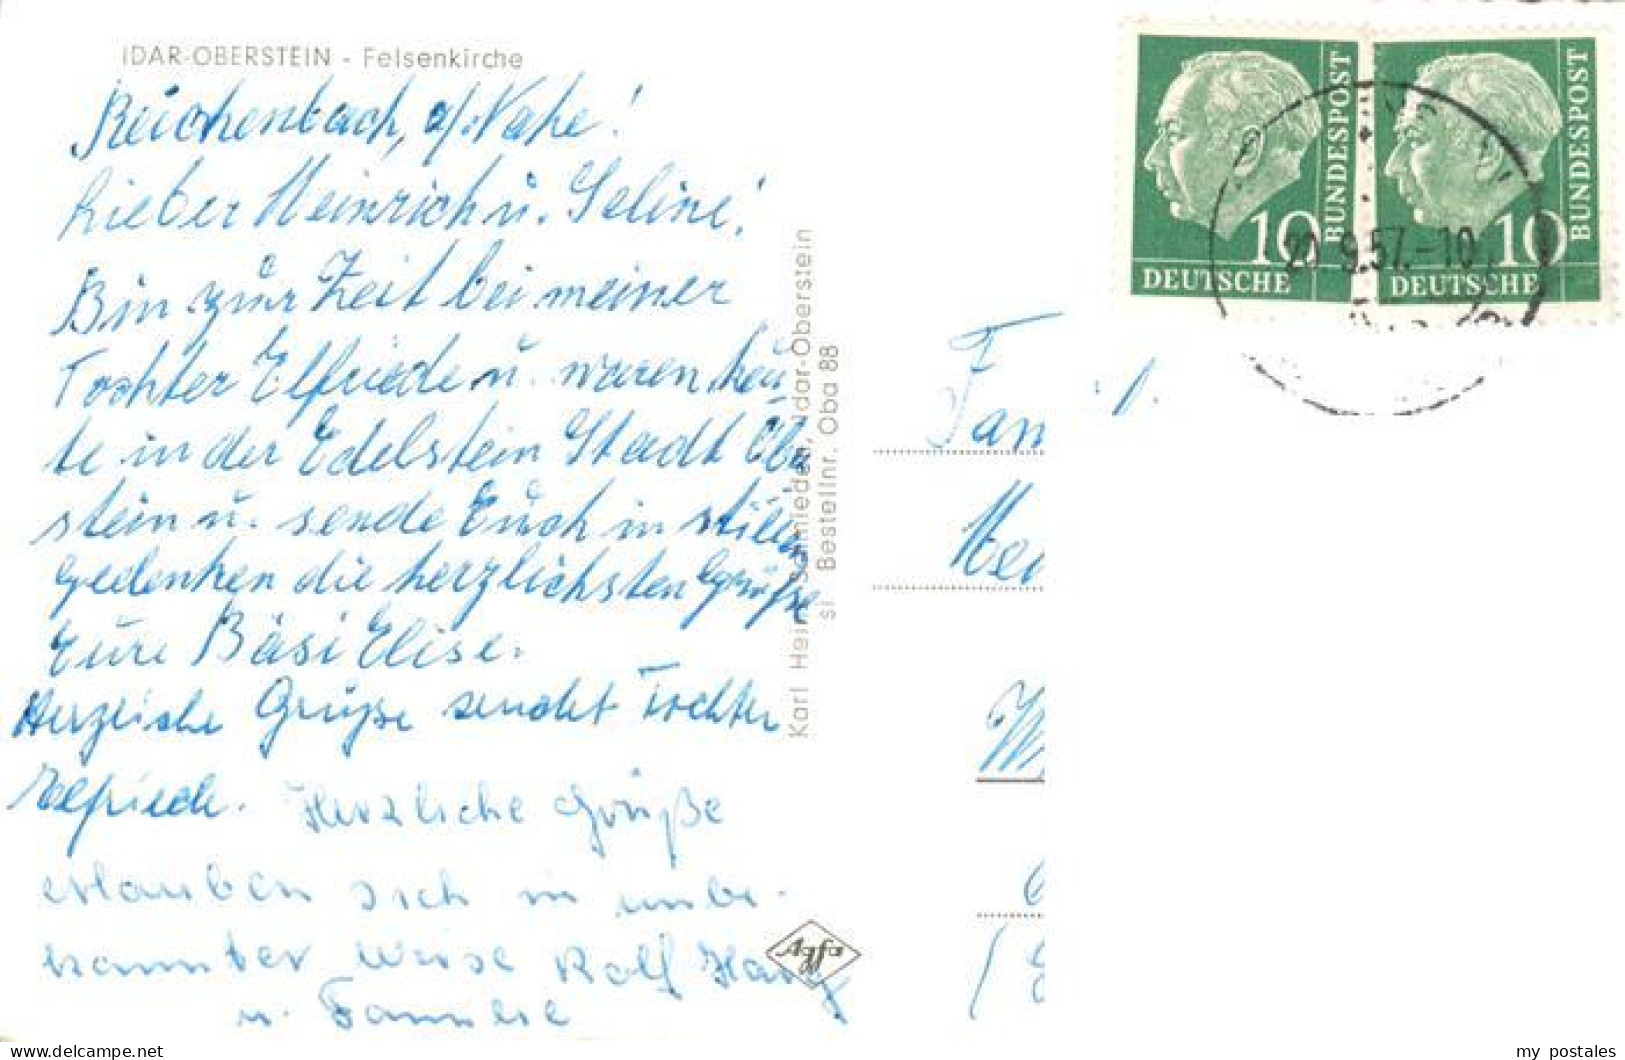 IDAR-OBERSTEIN - Felsenkirche
Reichenbach, a/Nahe!
Lieber Heinrich u. Seline!
Bin zur Zeit bei meiner
Tochter Elfriede u. waren heu
te in der Edelstein Stadt Ober
stein u. sende Euch in stillen
Gedenken die herzlichsten Grüße
Eure Bäsi Elise.
Herzliche Grüße sendet Tochter
Elfriede. Herzliche Grüße
erlauben sich in unbe-
kannter Weise Rolf Harry
u. Familie
Karl Heinz Schmieden, Idar-Oberstein
Bestellnr. Oba 88
Agfa
10
DEUTSCHE
BUNDESPOST
10
DEUTSCHE
BUNDESPOST
20.9.57.-10
Fam
my postales
delcampe.net